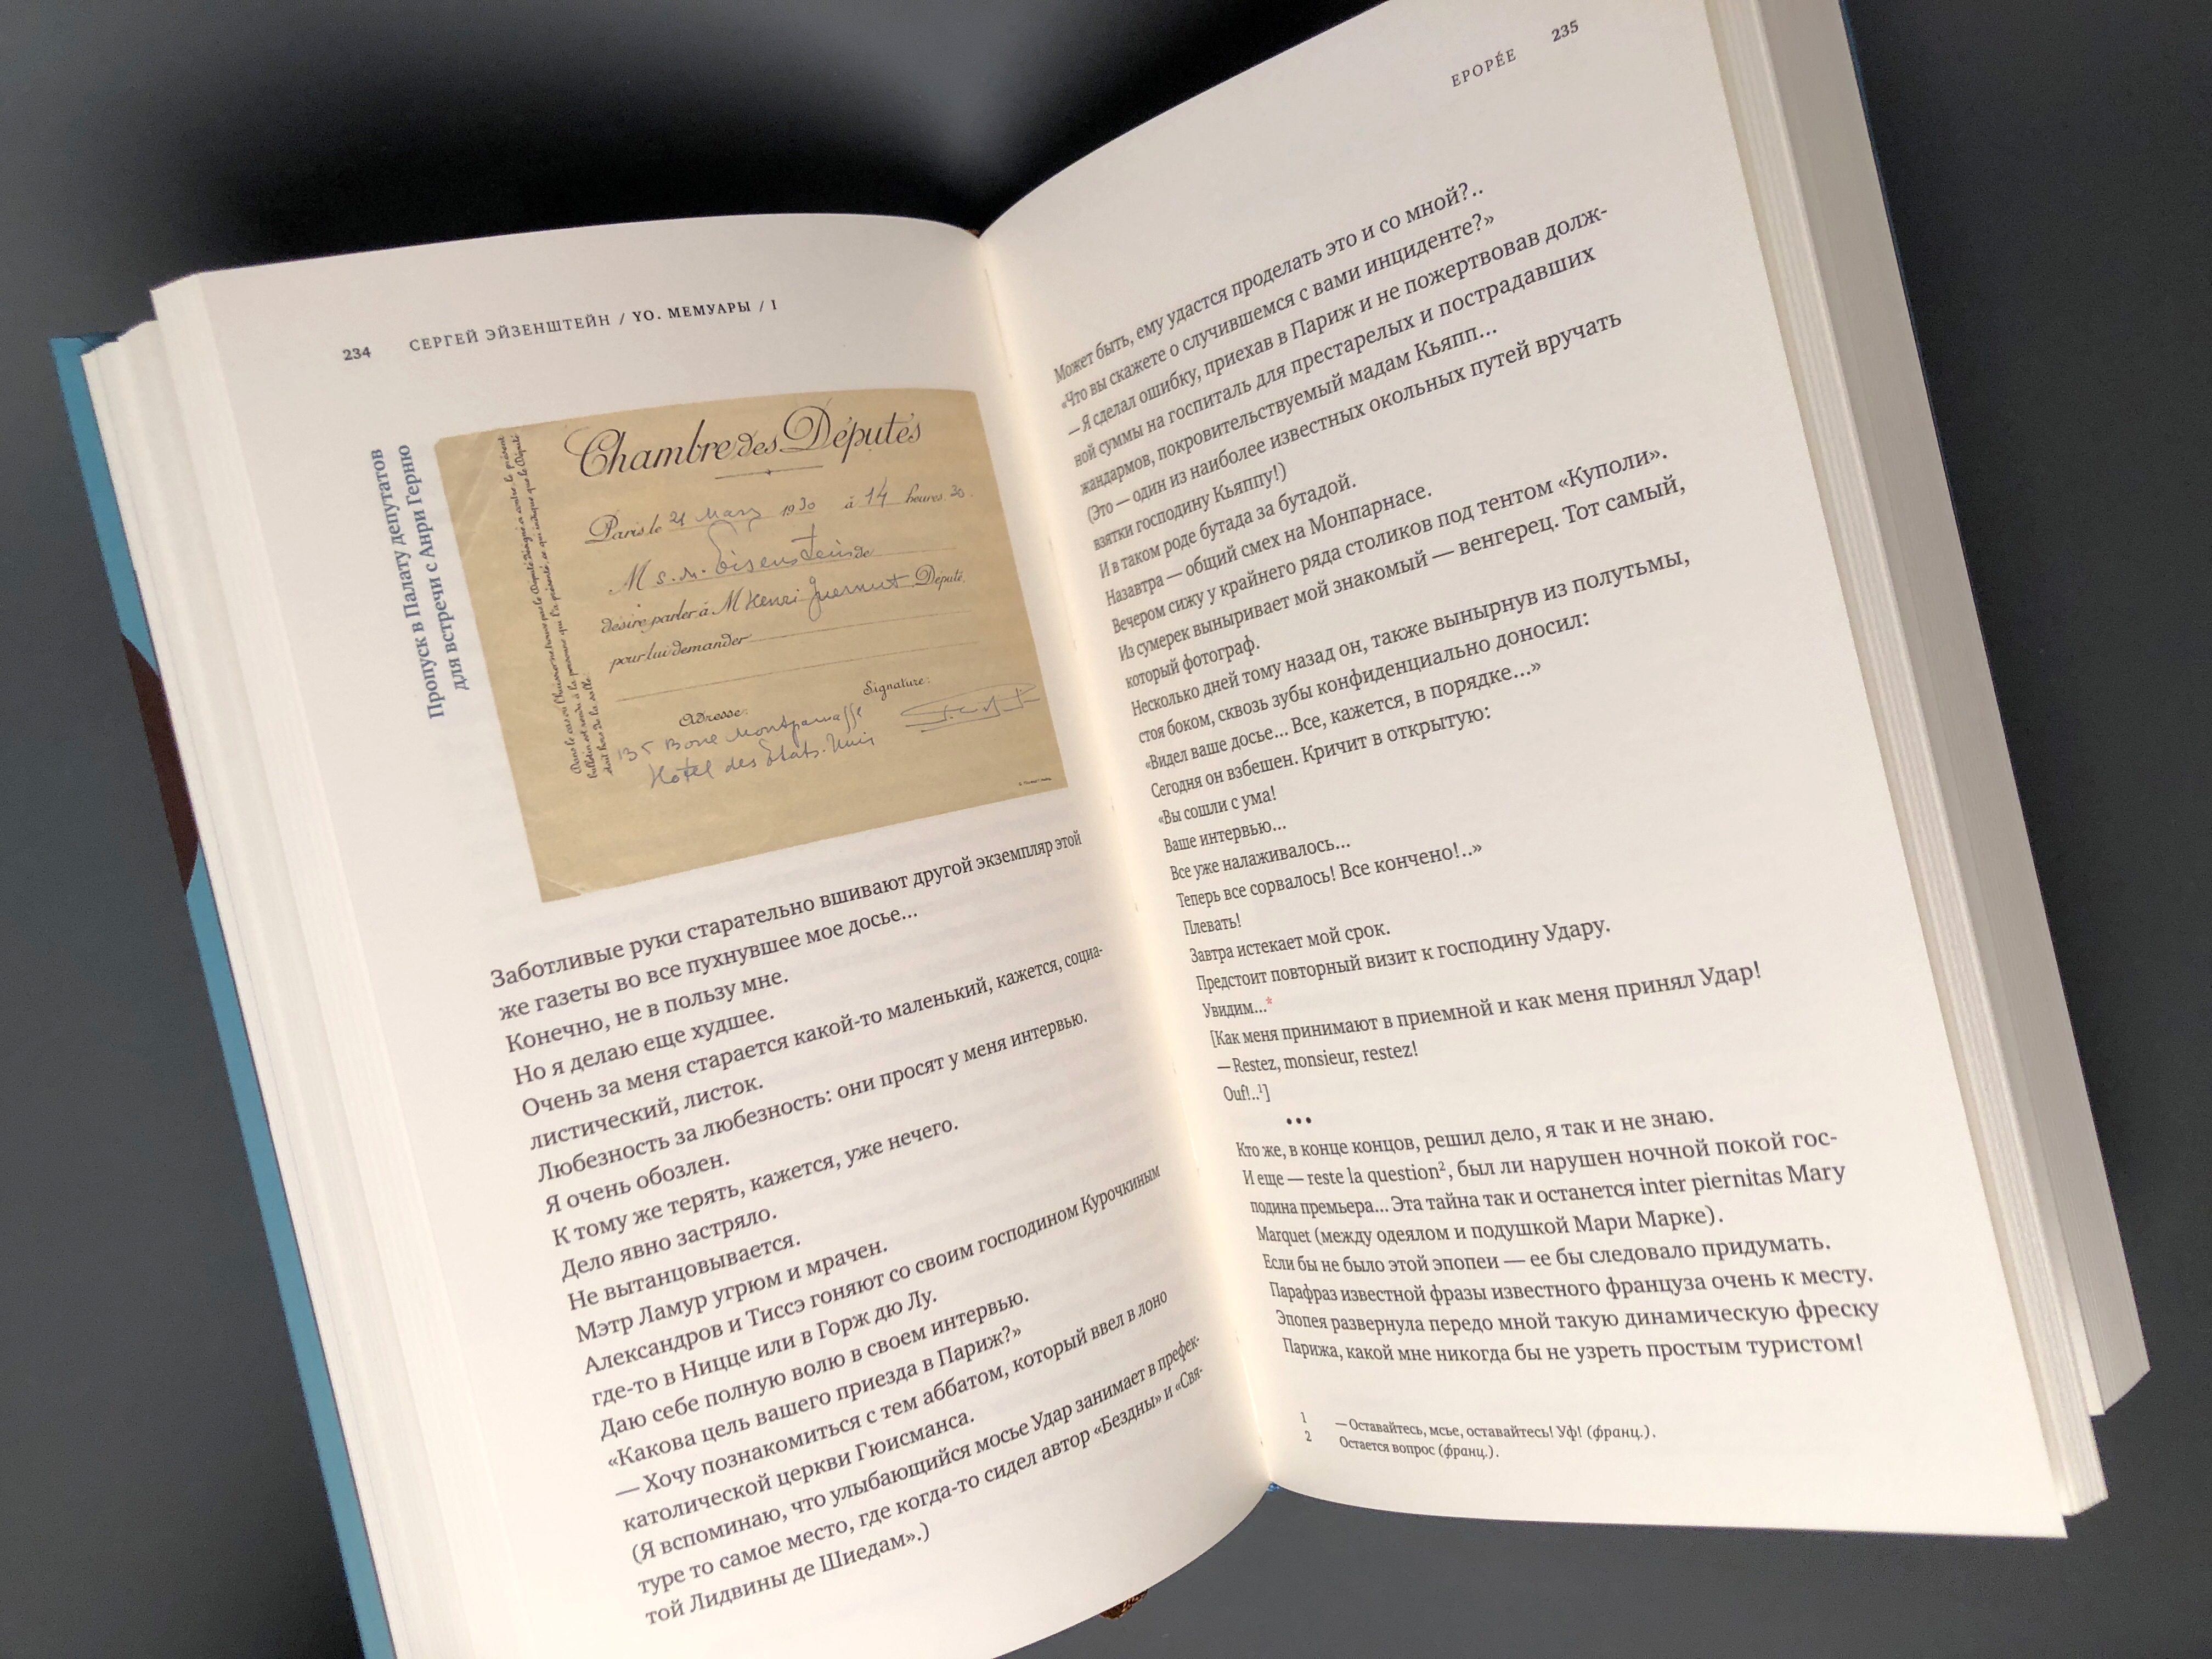 234 СЕРГЕЙ ЭЙЗЕНШТЕЙН / YO. МЕМУАРЫ / I
Пропуск в Палату депутатов
для встречи с Анри Герню
Chambre des Députés
Paris le 21 Mars 1930 à 14 heures 30.
M S. M. Eisenstein de
désire parler à M Henri Guernut Député
pour lui demander
Signature:
Adresse:
135 Montparnasse
Hôtel des États-Unis
Заботливые руки старательно вшивают другой экземпляр этой
же газеты во все пухнувшее мое досье…
Конечно, не в пользу мне.
Но я делаю еще худшее.
Очень за меня старается какой-то маленький, кажется, социа-
листический, листок.
Любезность за любезность: они просят у меня интервью.
Я очень обозлен.
К тому же терять, кажется, уже нечего.
Дело явно застряло.
Не вытанцовывается.
Мэтр Ламур угрюм и мрачен.
Александров и Тиссэ гоняют со своим господином Курочкиным
где-то в Ницце или в Горж дю Лу.
Даю себе полную волю в своем интервью.
«Какова цель вашего приезда в Париж?»
— Хочу познакомиться с тем аббатом, который ввел в лоно
католической церкви Гюисманса.
(Я вспоминаю, что улыбающийся мосье Удар занимает в префек-
туре то самое место, где когда-то сидел автор «Бездны» и «Свя-
той Лидвины де Шиедам».)
EPOPÉE 235
Может быть, ему удастся проделать это и со мной?..
«Что вы скажете о случившемся с вами инциденте?»
— Я сделал ошибку, приехав в Париж и не пожертвовав долж-
ной суммы на госпиталь для престарелых и пострадавших
жандармов, покровительствуемый мадам Кьяпп…
(Это — один из наиболее известных окольных путей вручать
взятки господину Кьяппу!)
И в таком роде бутада за бутадой.
Назавтра — общий смех на Монпарнасе.
Вечером сижу у крайнего ряда столиков под тентом «Куполи».
Из сумерек выныривает мой знакомый — венгерец. Тот самый,
который фотограф.
Несколько дней тому назад он, также вынырнув из полутьмы,
стоя боком, сквозь зубы конфиденциально доносил:
«Видел ваше досье… Все, кажется, в порядке…»
Сегодня он взбешен. Кричит в открытую:
«Вы сошли с ума!
Ваше интервью…
Все уже налаживалось…
Теперь все сорвалось! Все кончено!..»
Плевать!
Завтра истекает мой срок.
Предстоит повторный визит к господину Удару.
Увидим…*
[Как меня принимают в приемной и как меня принял Удар!
— Restez, monsieur, restez!
Ouf!..¹]
•••
Кто же, в конце концов, решил дело, я так и не знаю.
И еще — reste la question², был ли нарушен ночной покой гос-
подина премьера… Эта тайна так и останется inter piernitas Mary
Marquet (между одеялом и подушкой Мари Марке).
Если бы не было этой эпопеи — ее бы следовало придумать.
Парафраз известной фразы известного француза очень к месту.
Эпопея развернула передо мной такую динамическую фреску
Парижа, какой мне никогда бы не узреть простым туристом!
1 — Оставайтесь, мсье, оставайтесь! Уф! (франц.).
2 Остается вопрос (франц.).